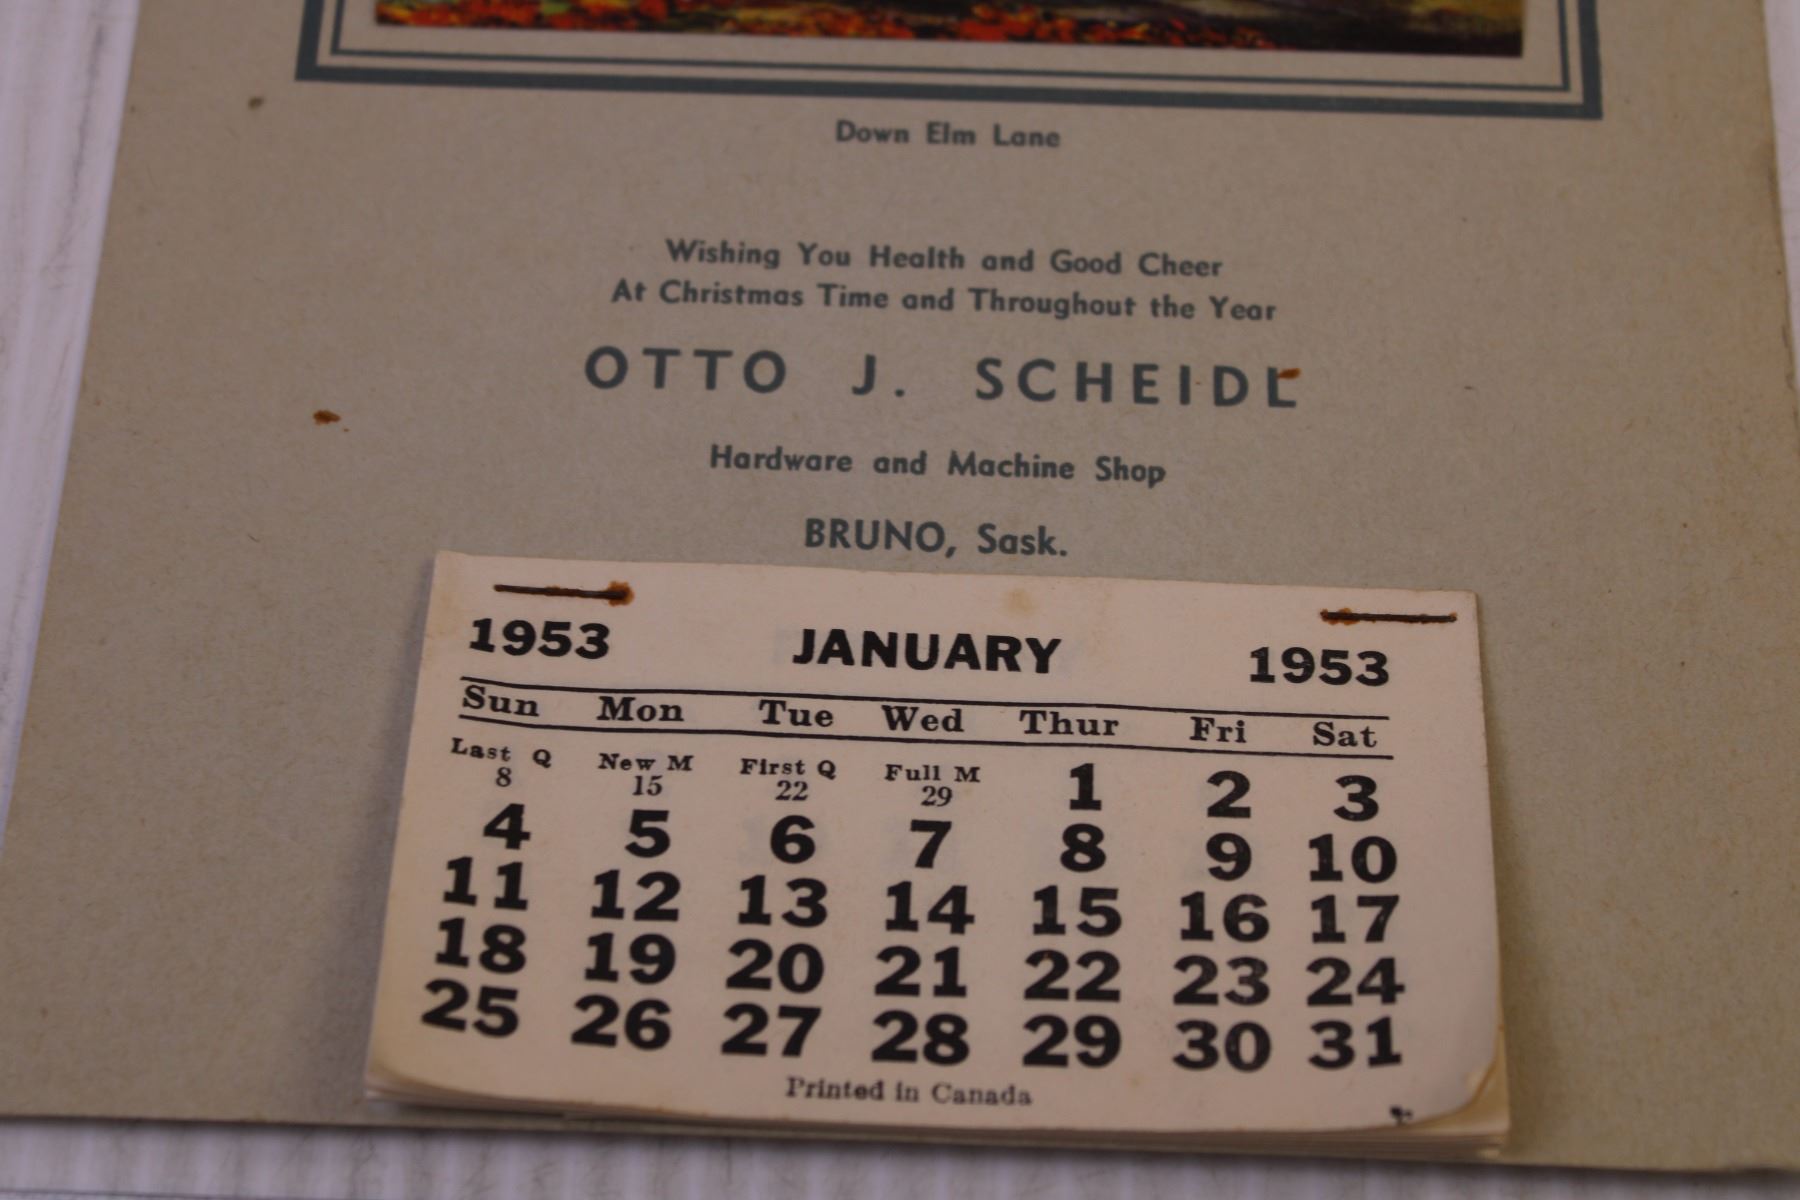 Down Elm Lane
Wishing You Health and Good Cheer
At Christmas Time and Throughout the Year
OTTO J. SCHEIDL
Hardware and Machine Shop
BRUNO, Sask.
1953 JANUARY 1953
Sun Mon Tue Wed Thur Fri Sat
Last Q 8 New M 15 First Q 22 Full M 29 1 2 3
4 5 6 7 8 9 10
11 12 13 14 15 16 17
18 19 20 21 22 23 24
25 26 27 28 29 30 31
Printed in Canada